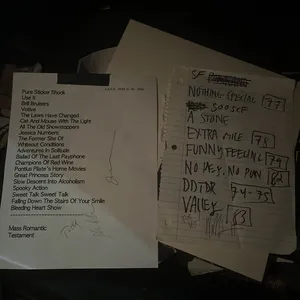 Pure Sticker Shock
Use It
Brill Bruisers
Votive
The Laws Have Changed
Cat And Mouse With The Light
All The Old Showstoppers
Jessica Numbers
The Former Site Of
Whiteout Conditions
Adventures In Solitude
Ballad Of The Last Payphone
Champions Of Red Wine
Pontius Pilate's Home Movies
Great Princess Story
Slow Descent Into Alcoholism
Spooky Action
Sweet Talk Sweet Talk
Falling Down The Stairs Of Your Smile
Bleeding Heart Show
Mass Romantic
Testament
SF
NOTHING SPECIAL 77
GOOSEF
A STONE
EXTRA MILE
FUNNY FEELING
NO KEY, NO PLAN
DDTDR 74-75
VALLEY 83